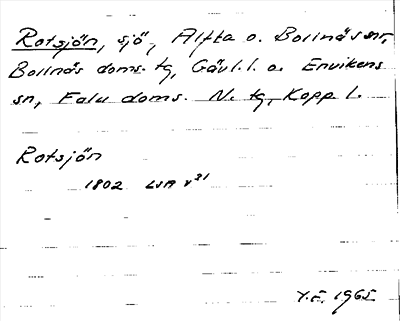 Rotsjön, sjö, Alfta o. Bollnäs snr,
Bollnäs doms. tg, Gävl. l. o. Envikens
sn, Falu doms. N. tg, Kopp l.
Rotsjön
1802 LSA v21
Y.E. 1965